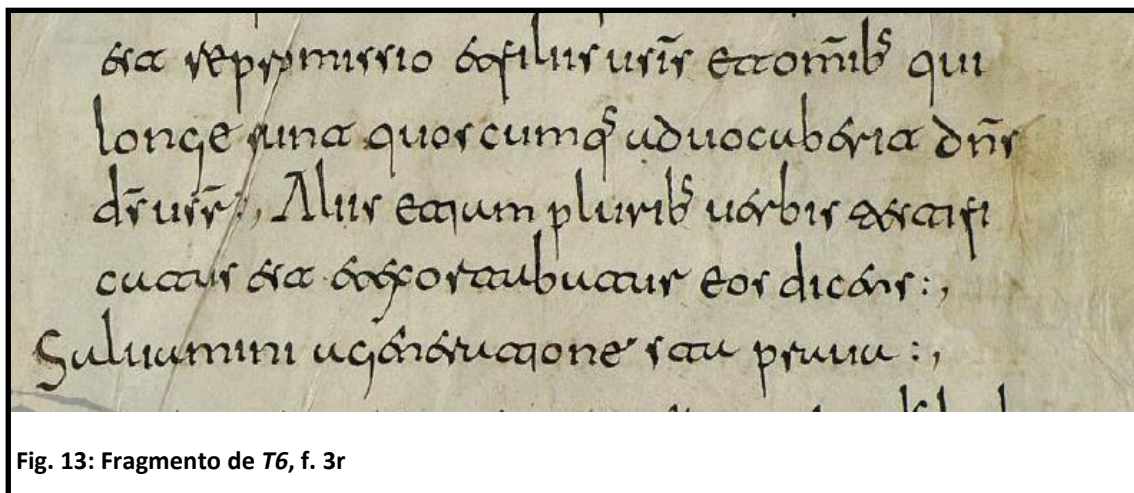 est repromissio et filiis ur̄is et om̄ibs qui
longe sunt quoscumq aduocaberit dn̄s
ds̄ urs̄ :, Aliis etiam pluribs uerbis testifi
catus est exortabatur eos dicens :,
Saluamini a generatione sta praua :,
Fig. 13: Fragmento de T6, f. 3r